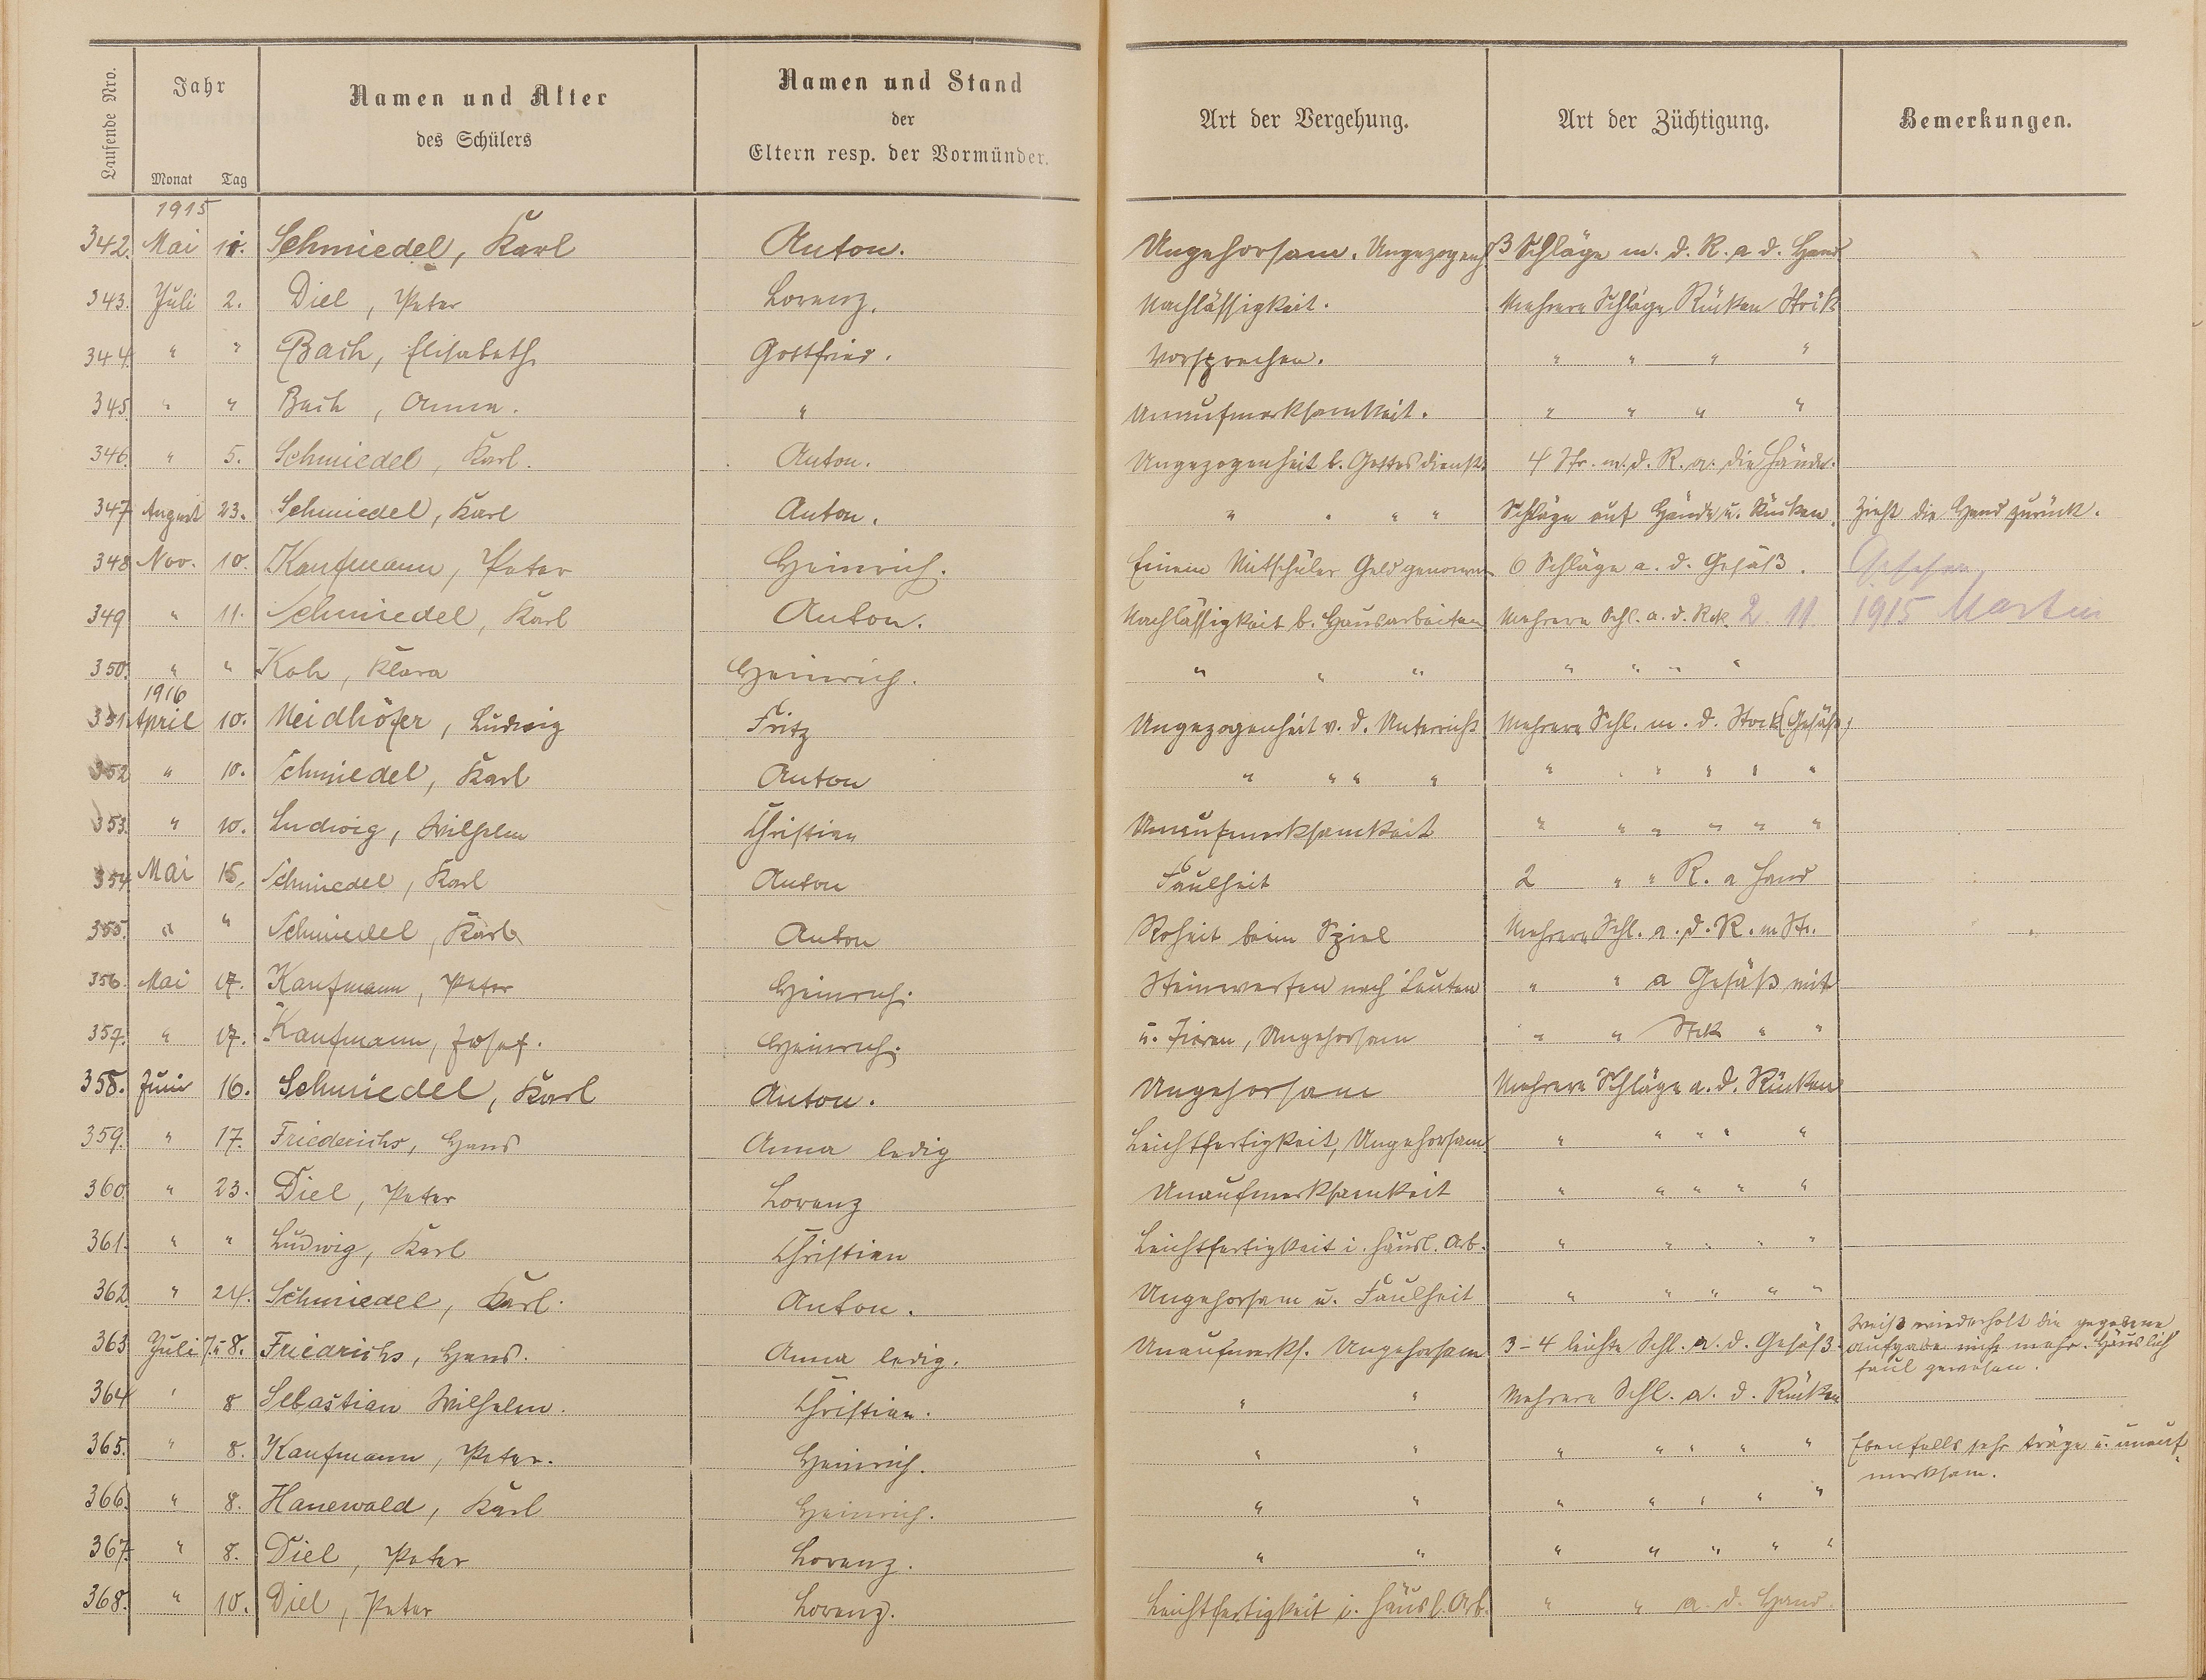 Laufende Nro. Jahr Monat Tag
Namen und Alter
des Schülers
Namen und Stand
der
Eltern resp. der Vormünder.
Art der Vergehung. Art der Züchtigung. Bemerkungen.
1915
342. Mai 11. Schmiedel, Karl Anton. Ungehorsam. Ungezogenh. 3 Schläge m. d. R. a d. Hand
343. Juli 2. Diel, Peter Lorenz. Nachlässigkeit. Mehrere Schläge Rücken Stock
344. " " Bach, Elisabeth Gottfried. Vorsprechen. " " " "
345. " " Bach, Anna. " Unaufmerksamkeit. " " " "
346. " 5. Schmiedel, Karl. Anton. Ungezogenheit b. Gottesdienst. 4 Str. m. d. R. a. die Hände.
347 August 23. Schmiedel, Karl Anton. " " " " Schläge auf Hände u. Rücken. Zieht die Hand zurück.
348 Nov. 10. Kaufmann, Peter Heinrich. Einem Mitschüler Geld genommen 6 Schläge a. d. Gesäß. Gesehen
349 " 11. Schmiedel, Karl Anton. Nachlässigkeit b. Hausarbeiten Mehrere Schl. a. d. Rck. 2. 11 1915 Martin
350. " " Koh, Klara Heinrich. " " " " " " "
1916
351. April 10. Neidhöfer, Ludwig Fritz Ungezogenheit v. d. Unterricht Mehrere Schl. m. d. Stock (Gesäß)
352 " 10. Schmiedel, Karl Anton " " " " " " " " " "
353. " 10. Ludwig, Wilhelm Christian Unaufmerksamkeit " " " " " "
354. Mai 15. Schmiedel, Karl Anton Faulheit 2 " " R. a Hand
355. " " Schmiedel, Karl Anton Roheit beim Spiel Mehrere Schl. a. d. R. m St.
356. Mai 17. Kaufmann, Peter Heinrich. Steinwerfen nach Leuten " " a Gesäß mit
357. " 17. Kaufmann, Josef. Heinrich. u. Tieren, Ungehorsam " " Stck " "
358. Juni 16. Schmiedel, Karl Anton. Ungehorsam Mehrere Schläge a. d. Rücken
359. " 17. Friederichs, Hans Anna ledig Leichtfertigkeit, Ungehorsam " " " " "
360. " 23. Diel, Peter Lorenz Unaufmerksamkeit " " " " "
361. " " Ludwig, Karl Christian Leichtfertigkeit i. häusl. Arb. " " " " "
362. " 24. Schmiedel, Karl. Anton. Ungehorsam u. Faulheit " " " " "
363 Juli 7. u 8. Friedrichs, Hans. Anna ledig. Unaufmerks. Ungehorsam 3-4 leichte Schl. a. d. Gesäß. Weiß wiederholt die gegebene
Aufgabe nicht mehr. Häuslich
faul gewesen.
364 " 8 Sebastian Wilhelm. Christian. " " Mehrere Schl. a. d. Rücken
365. " 8. Kaufmann, Peter. Heinrich. " " " " " " " Ebenfalls sehr träge u. unauf-
merksam.
366. " 8. Hanewald, Karl Heinrich. " " " " " " "
367. " 8. Diel, Peter Lorenz. " " " " " " "
368. " 10. Diel, Peter Lorenz. Leichtfertigkeit i. häusl. Arb. " " a. d. Hand.